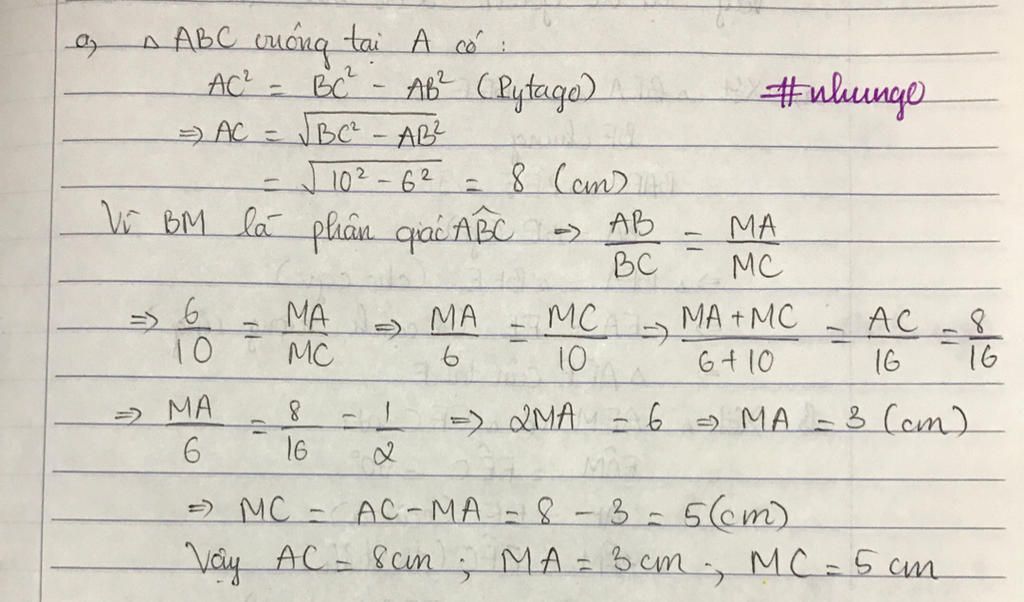 a, △ ABC vuông tại A có :
AC² = BC² - AB² (Pytago)
#nhunge
⇒ AC = √(BC² - AB²)
= √(10² - 6²) = 8 (cm)
Vì BM là phân giác ABĈ ⇒ AB/BC = MA/MC
⇒ 6/10 = MA/MC ⇒ MA/6 = MC/10 ⇒ (MA+MC)/(6+10) = AC/16 = 8/16
⇒ MA/6 = 8/16 = 1/2 ⇒ 2MA = 6 ⇒ MA = 3 (cm)
⇒ MC = AC - MA = 8 - 3 = 5(cm)
Vậy AC = 8cm ; MA = 3cm ; MC = 5 cm